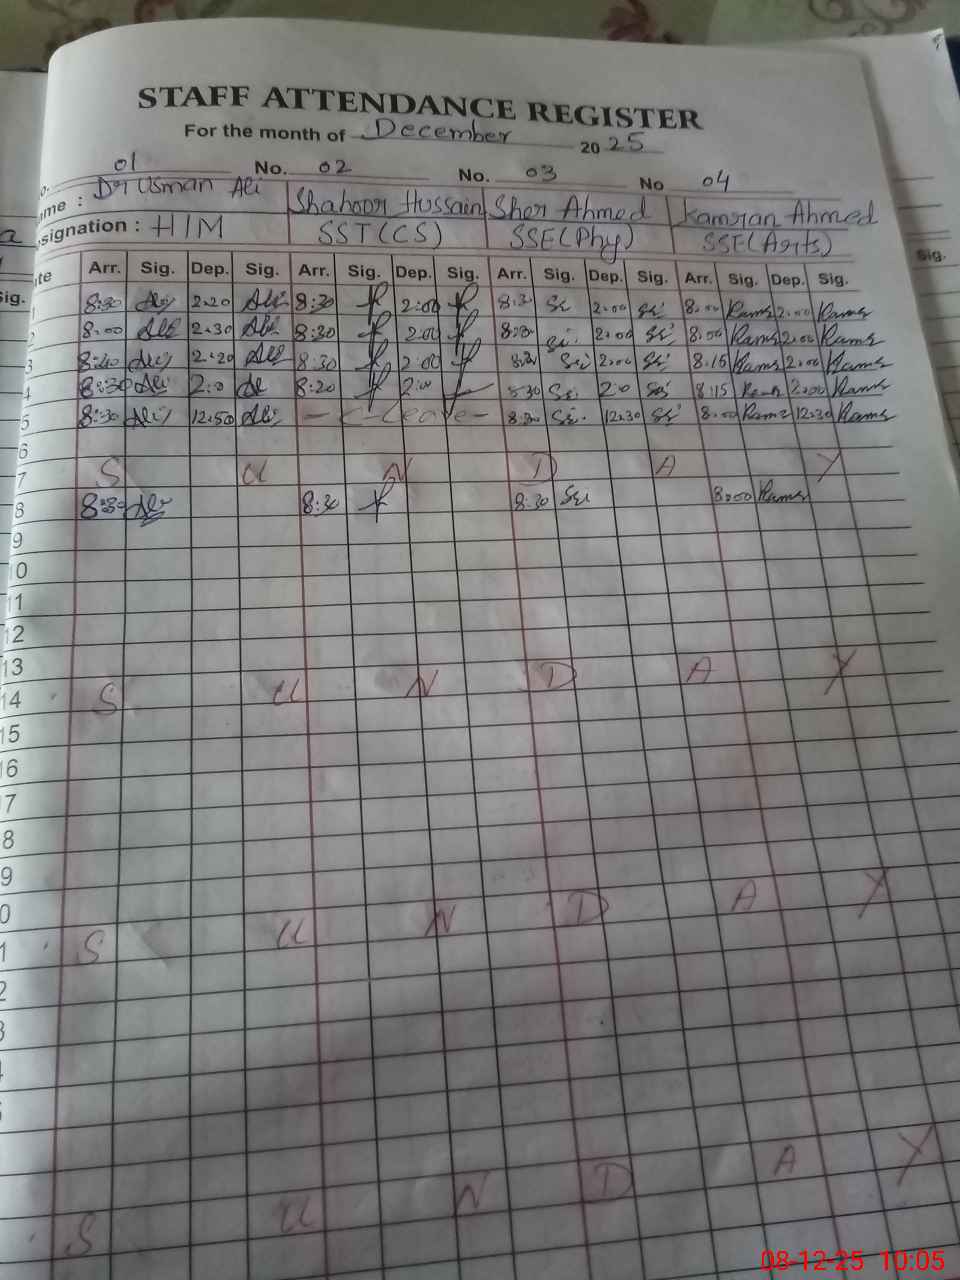 STAFF ATTENDANCE REGISTER
For the month of December 2025
o. 01 No. 02 No. 03 No 04
ame : Dr Usman Ali Shahoor Hussain Sher Ahmed Kamran Ahmed
signation : H/M SST(CS) SSE(Phy) SSE(Arts)
te Arr. Sig. Dep. Sig. Arr. Sig. Dep. Sig. Arr. Sig. Dep. Sig. Arr. Sig. Dep. Sig.
1 8:30 Ali 2:20 Ali 8:30 2:00 8:30 2:00 8:00 Rams 2:00 Rams
2 8:00 Ali 2:30 Ali 8:30 2:00 8:30 2:00 8:00 Rams 2:00 Rams
3 8:40 Ali 2:20 Ali 8:30 2:00 8:30 2:00 8:15 Rams 2:00 Rams
4 8:30 Ali 2:0 8:20 2:00 8:30 2:0 8:15 2:00 Rams
5 8:30 Ali 12:50 Ali Leave 8:30 12:30 8:00 Rams 12:30 Rams
6
7 S U N D A Y
8 8:30 Ali 8:30 8:30 8:00 Rams
9
10
11
12
13
14 S U N D A Y
15
16
7
8
9
0
1 S U N D A Y
2
3
S U N D A Y
Sig.
ig.
08-12-25 10:05